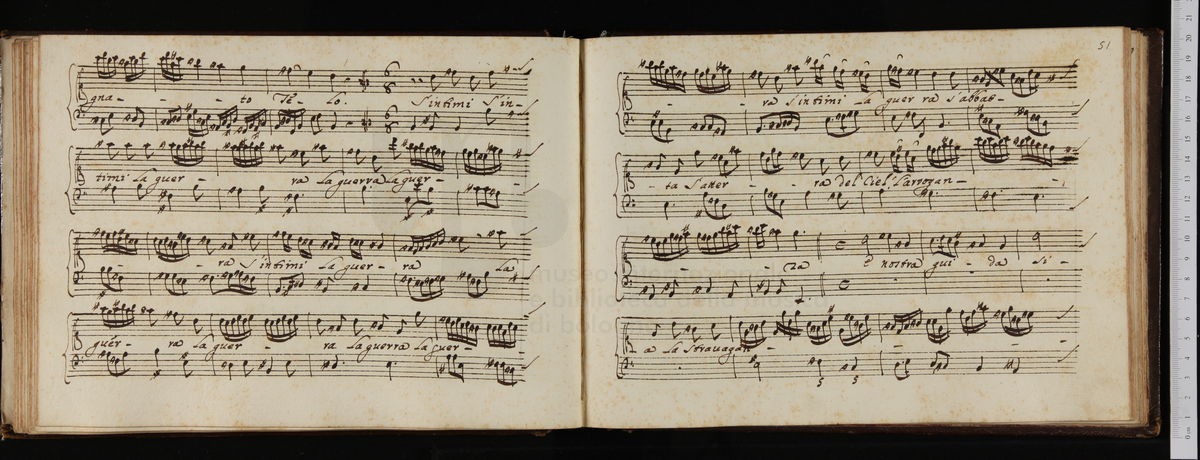 gna - - - to Te - lo. S'intimi S'in-
timi la guer - - ra la guerra la guer - -
- - ra S'intimi la guer - ra la
guer - ra la guer - - ra la guerra la guer -
51
- ra S'intimi la guer ra S'abbat -
- ta S'atter - - ra del Ciel l'arrogan -
za è nostra gui - da Si -
a la Stravagan - -
5 5
museo
biblioteca della musica
di bologna